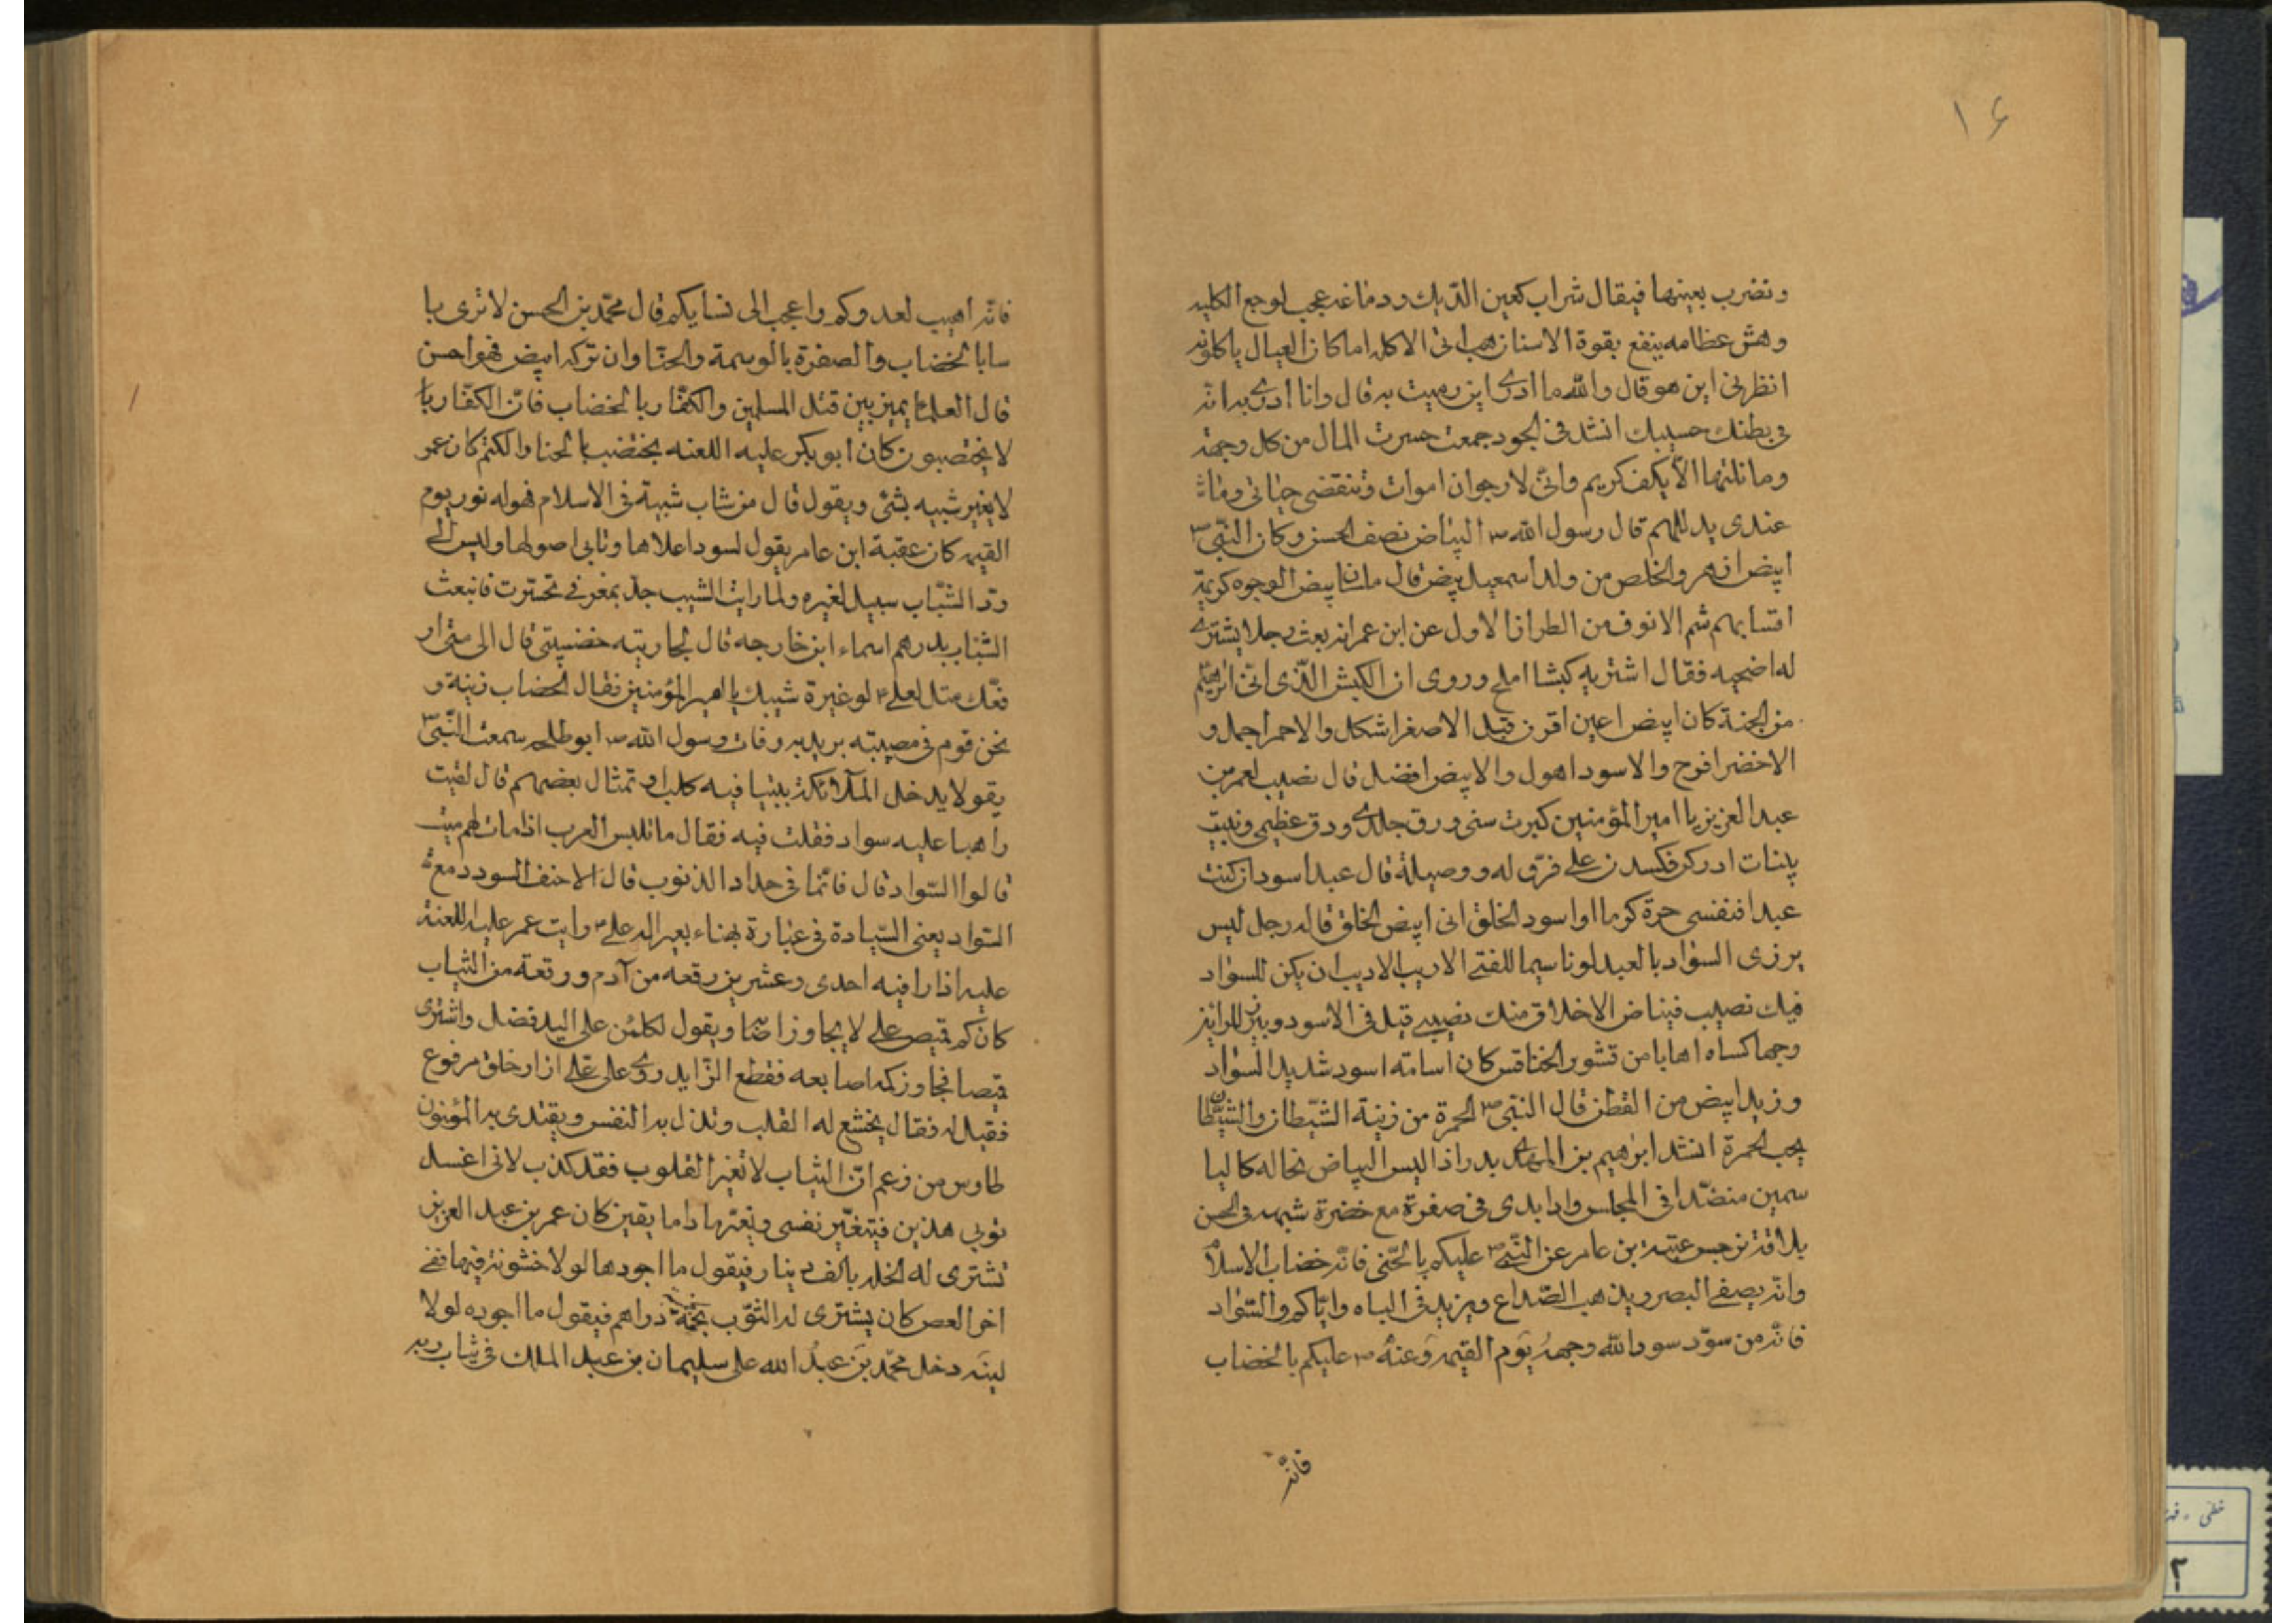 ١۶
وتضرب بعينها فيقال شراب كعين الديك ودماغه عجب لوجع الكليه
وهش عظامه ينفع بقوة الاسنان هب انى الاكله اما كان العيال ياكلونه
انظر لى اين هو قال والله ما ادرى اين رميت به قال وانا ادرى به انه
فى بطنك حسيبك انشد فى الجود جمعت حسرت المال من كل وجهة
وما نلتها الا بكف كريم وانى لارجوان اموات وتنقضى حياتى وما
عندى يد للهم قال رسول الله ص البياض نصف الحسن وكان النبى ص
ابيض ازهر والخلص من ولد اسمعيل بيض قال ابيض الوجوه كريمة
شم الانوف من الطراز الاول عن ابن عمر انه بعث رجلا يشترى
له اضحيه فقال اشتر به كبشا املح وروى ان الكبش الذى اتى ابرهيم
من الجنة كان ابيض اعين اقرن قيل الاصفر اشكل والاحمر اجمل و
الاخضر افرح والاسود اهول والابيض افضل قال نصيب لعمر بن
عبد العزيز يا امير المؤمنين كبرت سنى ورق جلدى ودق عظيمى وبنيت
بنات ادركن فكسدن على فرق له ووصيلة قال عبد اسود ان كنت
عبدا فنفسى حرة كرما او اسود الخلق انى ابيض الخلق قاله رجل ليس
يرزى السواد بالعبد لونا سيما للفتى الاريب الاديب ان يكن للسواد
فيك نصيب فبياض الاخلاق منك نصيبى قيل فى الاسود وبين للرائز
وجها كساه اهابا من قشور الخنافس كان اسامه اسود شديد السواد
وزيد ابيض من القطن قال النبى ص الحمرة من زينة الشيطان والشيطان
يحب الحمرة انشد ابرهيم بن المهدى بدر اذا لبس البياض نخاله كاليا
سمين منضدا فى المجلس واذا بدى فى صفرة مع خضرة شبهه فى الحسن
باقة نرجس عتبة بن عامر عن النبى ص عليكم بالحنى فانه خضاب الاسلام
وانه يصفى البصر ويذهب الصداع ويزيد فى الباه واياكم والسواد
فانه من سود سود الله وجهه يوم القيمه وعنه ص عليكم بالخضاب
فانه
فانه اهيب لعدوكم واعجب الى نسايكم قال محمد بن الحسن لا نرى با
سا بالخضاب والصفرة بالوسمة والحنا وان تركه ابيض فهو احسن
قال العلما يميز بين قتل المسلمين والكفار بالخضاب فان الكفار
لا يختضبون كان ابو بكر عليه اللعنه يختضب بالحنا والكتم كان عمر
لا يغير شيبه بشئ ويقول قال من شاب شيبة فى الاسلام فهو له نور يوم
القيمه كان عقبة ابن عامر يقول لسود اعلاها وتابى اصولها وليس الى
رد الشباب سبيل لغيره ولما رايت الشيب حل بمفرقى تحسرت فانبعث
الشباب بدرهم اسماء ابن خارجه قال لجاريته خضبينى قال الى متى ار
قعك مثل لعلى ع لو غيرة شيبك يا امير المؤمنين فقال الخضاب زينة و
نحن قوم فى مصيبته يريد به وفات رسول الله ص ابو طلحه سمعت النبى ص
يقول لا يدخل الملائكة بيتا فيه كلب او تمثال بعضهم قال لقيت
راهبا عليه سواد فقلت فيه فقال ما تلبس العرب اذا مات لهم ميت
قالوا السواد قال فانما فى حداد الذنوب قال الاحنف السودد مع
السواد يعنى السيادة فى عبارة بهناء بعير اله على ع رايت عمر عليه اللعنة
عليه اذارا فيه احدى وعشرين رقعه من آدم ورقعة من الثياب
كان كم قميص على لا يجاوز اصابعه ويقول لكلمن على اليد فضل واشترى
قميصا فجاوز كمه اصابعه فقطع الزايد روى على على ازار خلق مرفوع
فقيل له فقال يخشع له القلب وتذل به النفس ويقتدى به المؤمنون
طاوس من زعم ان الثياب لا تغير القلوب فقد كذب لانى اغسل
ثوبى هذين فيتغير نفسى وتغيرها داما يقين كان عمر بن عبد العزيز
تشترى له الحله بالف دينار فيقول ما اجودها لولا خشونة فيها ففى
اخر العمر كان يشترى له الثوب بخمسة دراهم فيقول ما اجوده لولا
لينه دخل محمد بن عبد الله على سليمان بن عبد الملك فى ثياب